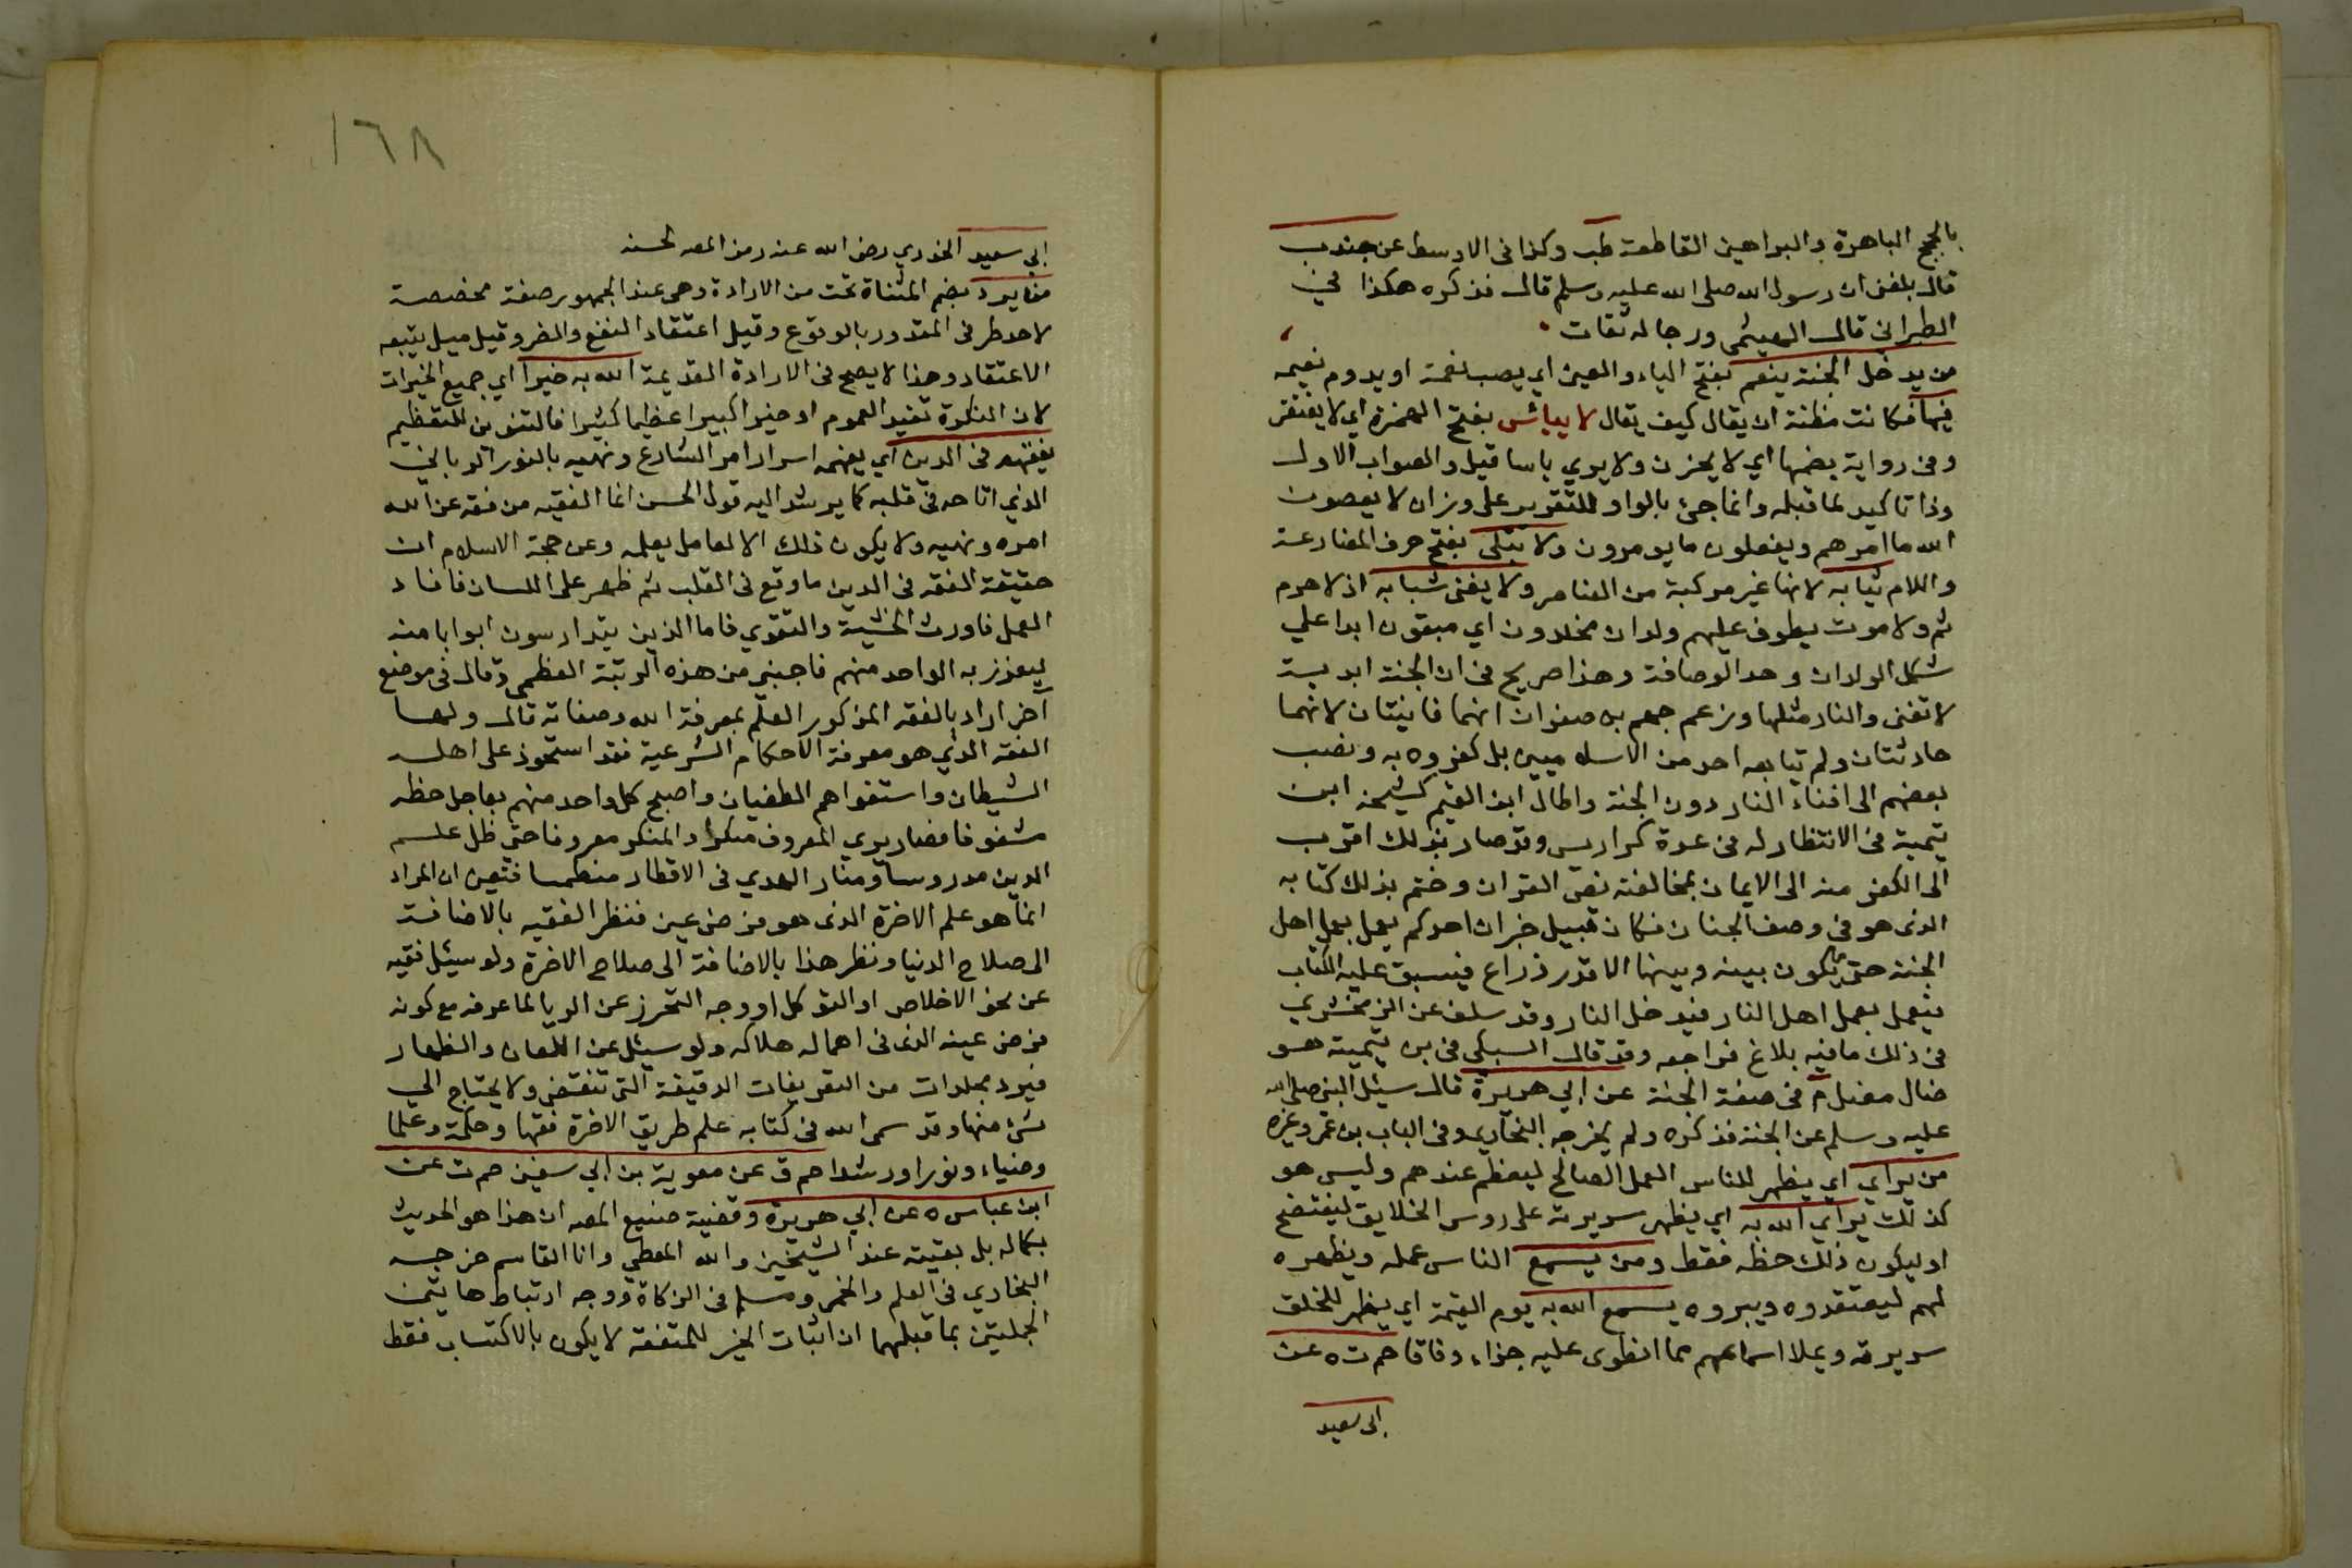 بالحجج الباهرة والبراهين القاطعة طب وكذا فى الاوسط عن جندب
قال بلغنى ان رسول الله صلى الله عليه وسلم قال فذكره هكذا في
الطبرانى قال الهيثمى ورجاله ثقات
من يدخل الجنة ينعم بفتح الياء والعين اي يصب نعمة او يدوم نعيمه
فيها فكانت مظنة ان يقال كيف يقال لا يبأس بفتح الهمزة اي لا يفتقر
وفى رواية بضمها اي لا يحزن ولا يري باسا قيل والصواب الاول
وذا تاكيد لما قبله وانما جئ بالواو للتقرير على وزان لا يعصون
الله ما امرهم ويفعلون ما يومرون ولا تبلى بفتح حرف المضارعة
واللام ثيابه لانها غير مركبة من العناصر ولا يفنى شبابه اذ لا هرم
ثم ولا موت يطوف عليهم ولدان مخلدون اي مبقون ابدا علي
شكل الولدان وحد الوصافة وهذا صريح فى ان الجنة ابدية
لا تفنى والنار مثلها وزعم جهم بن صفوان انهما فانيتان لانهما
حادثتان ولم يتابعه احد من الاسلاميين بل كفروه به وذهب
بعضهم الى افناء النار دون الجنة واطال ابن القيم كشيخه ابن
تيمية فى الانتظار له فى عدة كراريس وقد صار بذلك اقرب
الى الكفر منه الى الايمان بمخالفته نص القران وختم بذلك كتابه
الذى هو فى وصف الجنان فكان قبيل خبر ان احدكم يعمل بعمل اهل
الجنة حتى ما يكون بينه وبينها الا قدر ذراع فيسبق عليه الكتاب
فيعمل بعمل اهل النار فيدخل النار وقد سلف عن الزمخشري
فى ذلك ما فيه بلاغ فراجعه وقد قال السبكى فى بن تيمية هو
ضال مضل م فى صفة الجنة عن ابي هريرة قال سئل النبى صلى الله
عليه وسلم عن الجنة فذكره ولم يخرجه البخاري وفى الباب بن عمر وغيره
من يرائي اي يظهر للناس العمل الصالح ليعظم عندهم وليس هو
كذلك يرائي الله به اي يظهر سريرته على روس الخلايق ليفتضح
او ليكون ذلك حظه فقط ومن يسمع الناس عمله ويظهره
لهم ليعتقدوه ويبروه يسمع الله به يوم القيمة اي يظهر للخلق
سريرته ويملا اسماعهم مما انطوى عليه جزاء وفاقا حم ت ه عن
ابى سعيد
١٦٨
ابي سعيد الخدري رضى الله عنه رمز المصه لحسنه
من يرد بضم المثناة تحت من الارادة وهى عند الجمهور صفة مخصصة
لاحد طرفى المقدور بالوقوع وقيل اعتقاد النفع والضر وقيل ميل يتبعه
الاعتقاد وهذا لا يصح فى الارادة القديمة الله به خيرا اي جميع الخيرات
لان النكرة تفيد العموم او خيرا كبيرا عظيما كثيرا فالتنوين للتعظيم
يفقهه فى الدين اي يفهمه اسرار امر الشارع ونهيه بالنور الرباني
الذي اناخه فى قلبه كما يرشد اليه قول الحسن انما الفقيه من فقه عن الله
امره ونهيه ولا يكون ذلك الا لعامل بعلمه وعن حجة الاسلام ان
حقيقة الفقه فى الدين ما وقع فى القلب ثم ظهر على اللسان فافاد
العمل فاورث الخشية والتقوي فاما الذين يتدارسون ابوابا منه
ليعزز به الواحد منهم فاجنبي من هذه الرتبة العظمي وقال فى موضع
آخر اراد بالفقه المذكور العلم بمعرفة الله وصفاته قال واما
الفقه الذي هو معرفة الاحكام الشرعية فقد استحوذ على اهله
الشيطان واستغواهم الطغيان واصبح كل واحد منهم بعاجل حظه
مشغوفا فصار يري المعروف منكرا والمنكر معروفا حتى ظل علم
الدين مدروسا ومنار الهدي فى الاقطار منطمسا فتعين ان المراد
انما هو علم الاخرة الذى هو فرض عين فنظر الفقيه بالاضافة
الى صلاح الدنيا ونظر هذا بالاضافة الى صلاح الاخرة ولو سيئل فقيه
عن نحو الاخلاص او التوكل او وجه التحرز عن الريا لما عرفه مع كونه
فرض عينه الذى فى اهماله هلاكه ولو سيئل عن اللعان والظهار
فيرد بمجلدات من التعريفات الدقيقة التى تنقضى ولا يحتاج الي
شئ منها وقد سمى الله فى كتابه علم طريق الاخرة فقها وحكمة وعلما
وضياء ونورا ورشدا حم ق عن معوية بن ابي سفين حم ت عن
ابن عباس ه عن ابي هريرة وقضية صنيع المصه ان هذا هو الحديث
بكماله بل بقيته عند الشيخين والله المعطي وانا القاسم خرجه
البخاري فى العلم والخمس ومسلم فى الزكاة ووجه ارتباط هاتين
الجملتين بما قبلهما ان اثبات الخير للمتفقه لا يكون بالاكتساب فقط